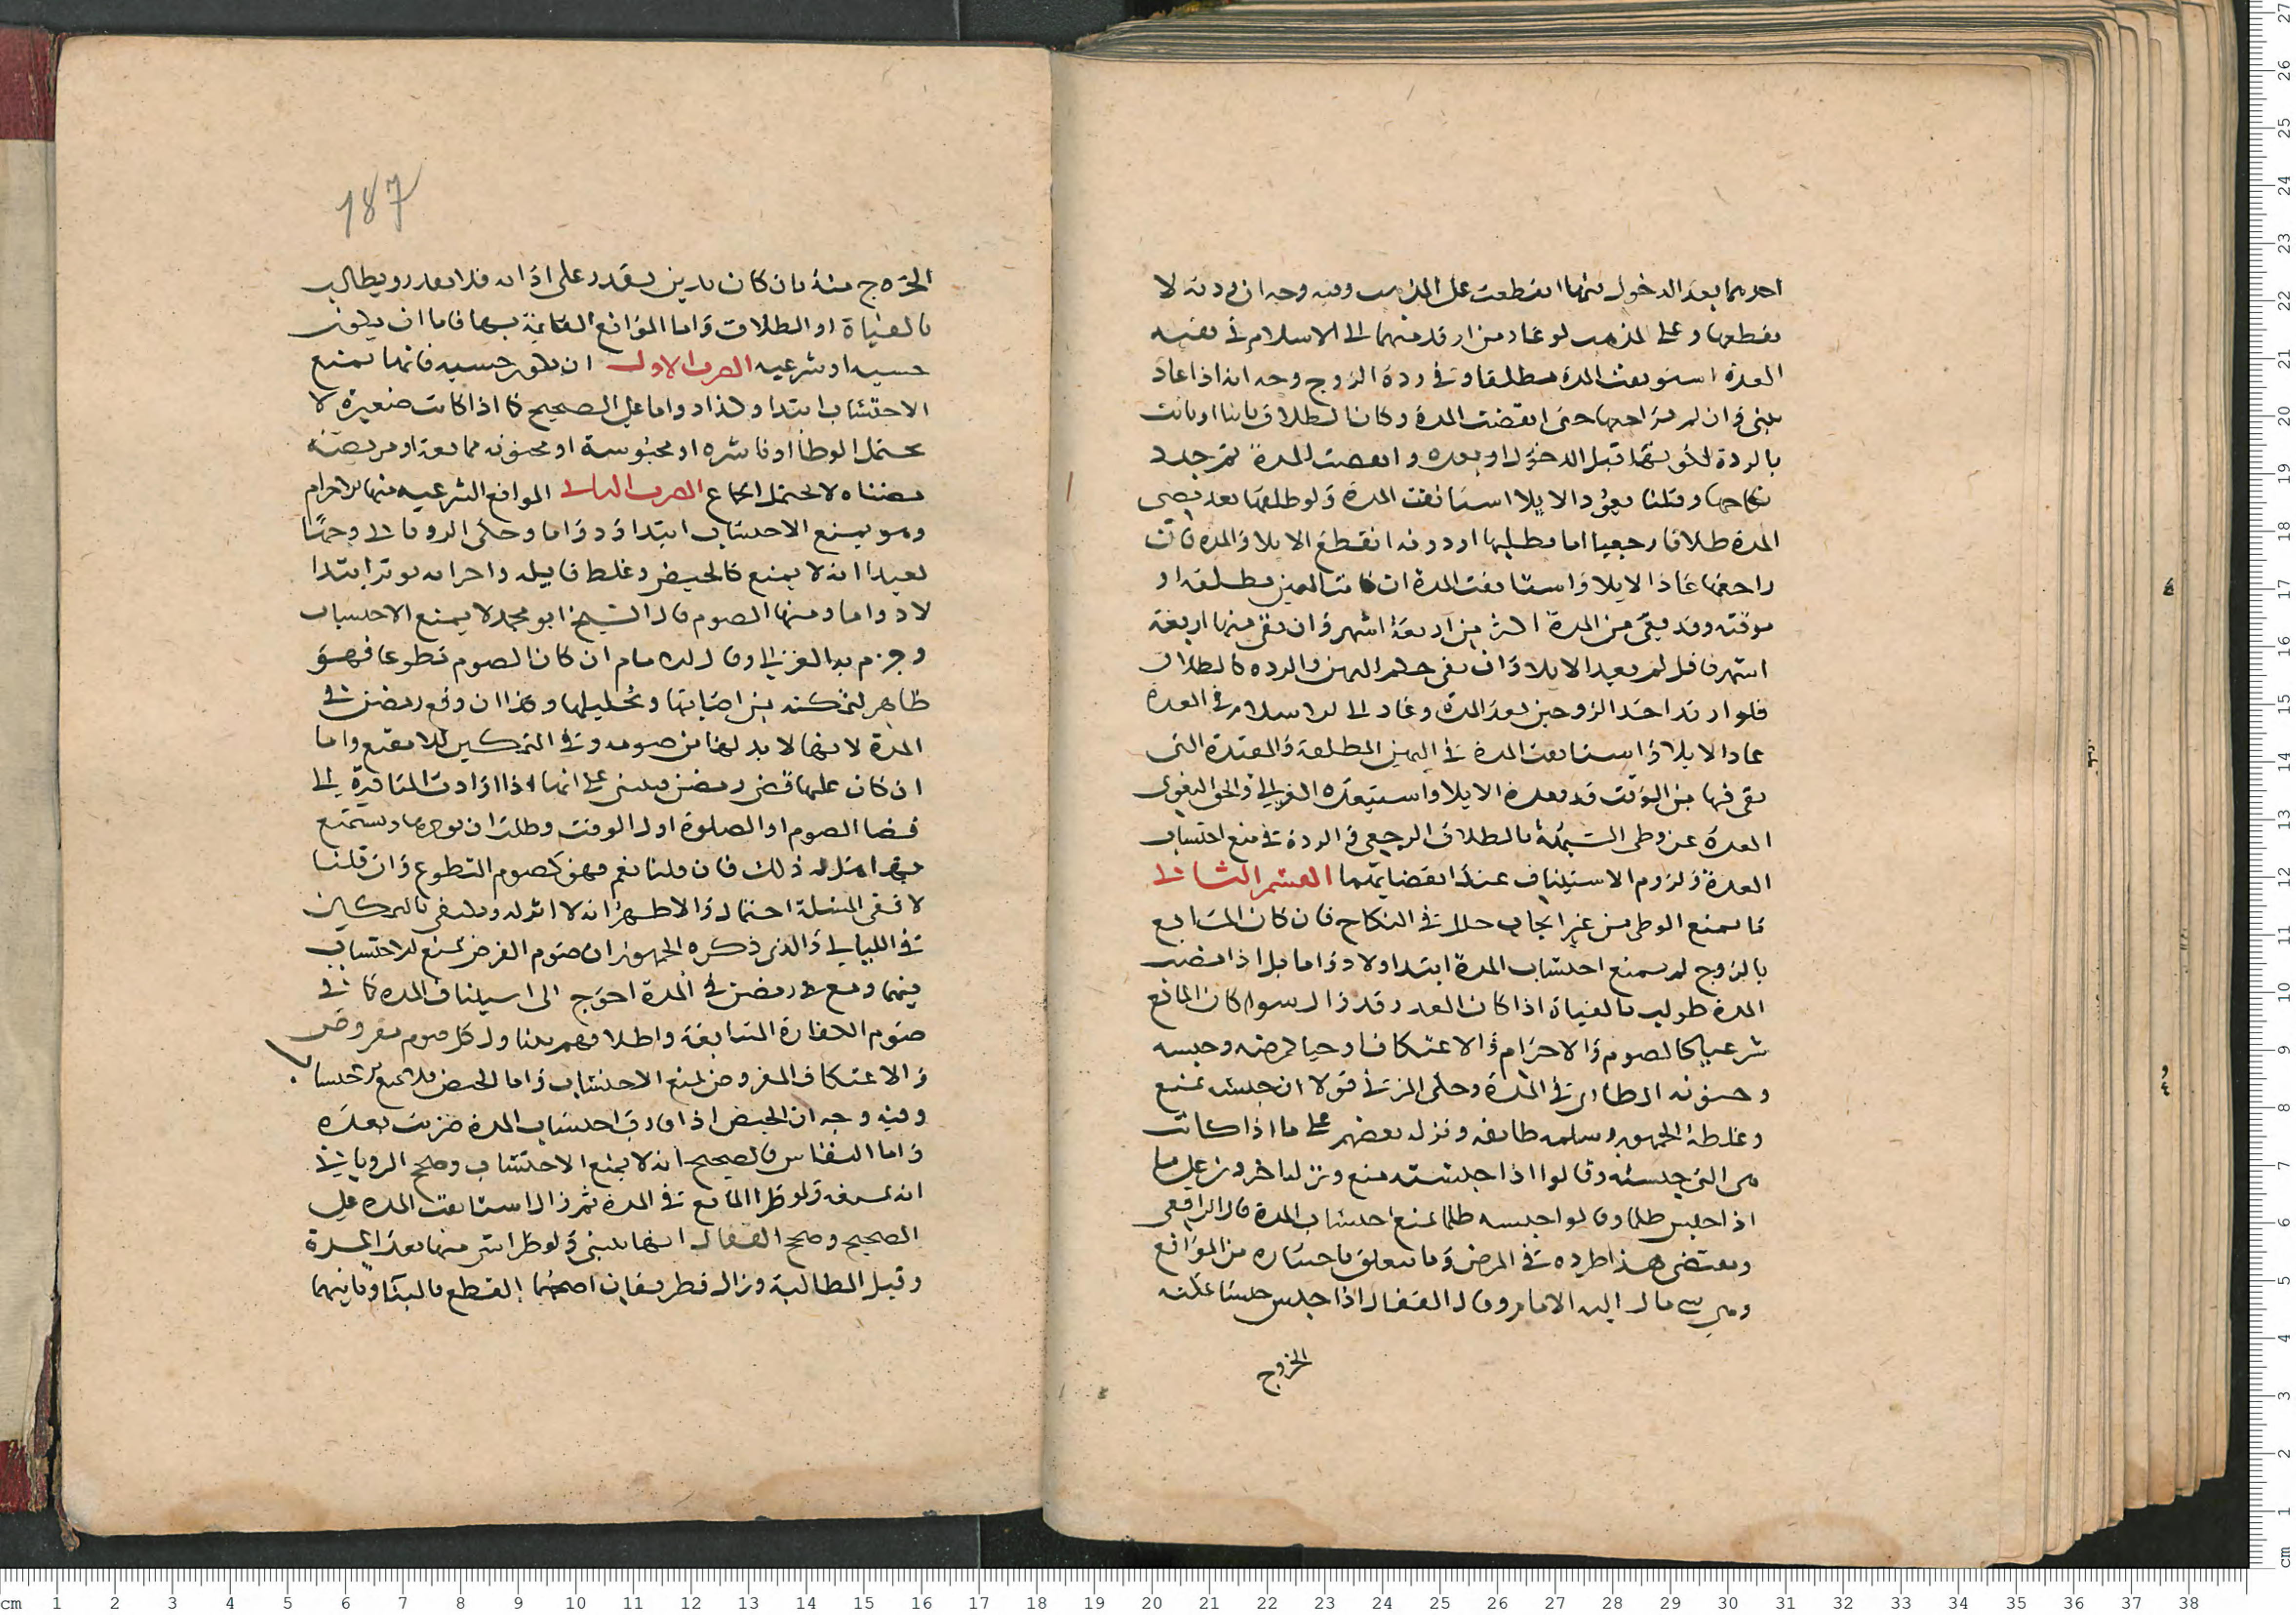 احدهما بعد الدخول منهما انقطعت على المذهب وفيه وجه ان ردته لا
يقطعها وعلى المذهب لو عاد من ارتد منهما الى الاسلام في بقية
العدة استونفت المدة مطلقا وفي ردة الزوج وجه انه اذا عاد
يبنى وان لم يراجعها حتى انقضت المدة وكان الطلاق باينا او بانت
بالردة لكونها قبل الدخول او بعده وانقضت المدة ثم جدد
نكاحها وقلنا بعود الايلا استانفت المدة ولو طلقها بعد مضى
المدة طلاقا رجعيا اما بطلبها او دونه انقطع الايلا والمدة فان
راجعها عاد الايلا واستانفت المدة ان كانت اليمين مطلقة او
موقتة وقد بقى من المدة اكثر من اربعة اشهر وان بقى منها اربعة
اشهر فاقل لم يعد الايلا وان بقى حكم اليمين والرده كالطلاق
فلو ارتد احد الزوجين بعد المدة وعاد الى الاسلام في العدة
عاد الايلا واستانفت المدة في اليمين المطلقة والمقيدة التى
بقى فيها من الوقت قدر مدة الايلا واستبعده الغزالي والحق البغوى
العدة عن وطى الشبهة بالطلاق الرجعي والردة في منع احتساب
المدة ولزوم الاستيناف عند انقضايهما القسم الثاني
ما يمنع الوطى من غير ايجاب خلل في النكاح فان كان المانع
بالزوج لم يمنع احتساب المدة ابتدا ولا دواما بل اذا مضت
المدة طولب بالفياة اذا كان العذر قد زال سوا كان المانع
شرعيا كالصوم والاحرام والاعتكاف او حسيا كمرضه وحبسه
وجنونه الطارى في المدة وحكى المزني قولا ان حبسه يمنع
وغلطه الجمهور وسلمه طايفه ونزله بعضهم على ما اذا كانت
هى التى حبسته وقالوا اذا حبسته منع ونزله اخرون على ما
اذا حبس ظلما وقالوا حبسه ظلما يمنع احتساب المدة قال الرافعي
ومقتضى هذا طرده في المرض وما يتعلق باختياره من الموانع
ومن سه مال اليه الامام وقال القفال اذا حبس حبسا يمكنه
الخروج
187
الخروج منه بان كان بدين يقدر على ادايه فلا يعذر ويطالب
بالفياة او الطلاق واما الموانع القايمة بها فاما ان يكون
حسيه او شرعيه الضرب الاول ان يكون حسيه فانها تمنع
الاحتساب ابتدا وكذا دواما على الصحيح كما اذا كانت صغيرة لا
تحتمل الوطا او ناشزه او محبوسة او مجنونه ممانعة او مريضة
مضناه لا تحتمل الجماع الضرب الثاني الموانع الشرعيه منها الاحرام
وهو يمنع الاحتساب ابتدا ودواما وحكى الروياني وجها
بعيدا انه لا يمنع كالحيض وغلط قايله واخر انه يوثر ابتدا
لا دواما ومنها الصوم قال الشيخ ابو محمد لا يمنع الاحتساب
وجزم به الغزالي وقال الامام ان كان الصوم تطوعا فهو
ظاهر لتمكنه من اصابتها وتحليلها وكذا ان وقع رمضان في
المدة لانها لا بد لها من صومه وفي التمكين ليلا مقنع واما
ان كان عليها قضى رمضان فيبنى على انها اذا ارادت المبادرة الى
قضا الصوم او الصلوة اول الوقت وطلب ان يوخرها ويستمتع
بها هل له ذلك فان قلنا نعم فهو كصوم التطوع وان قلنا
لا ففى المسئلة احتمال والاظهر انه لا اثر له ويكتفى بالتمكين
في الليالي والذى ذكره الجمهور ان صوم الفرض يمنع الاحتساب
فيهما ومع في رمضان في المدة احوج الى استيناف المدة كما في
صوم الكفارة المتتابعة واطلاقهم يتناول كل صوم مفروض
والاعتكاف المفروض يمنع الاحتساب واما الحيض فلا يمنع الاحتساب
وفيه وجه ان الحيض اذا قارن احتساب المدة ضربت بعده
واما النفاس فالصحيح انه لا يمنع الاحتساب وصحح الروياني
انه يمنعه ولو طرا المانع في المدة ثم زال استانفت المده على
الصحيح وصحح القفال انها تبنى ولو طرا شى منها بعد المدة
وقبل المطالبة وزال فطريقان اصحهما القطع بالبنا وثانيهما